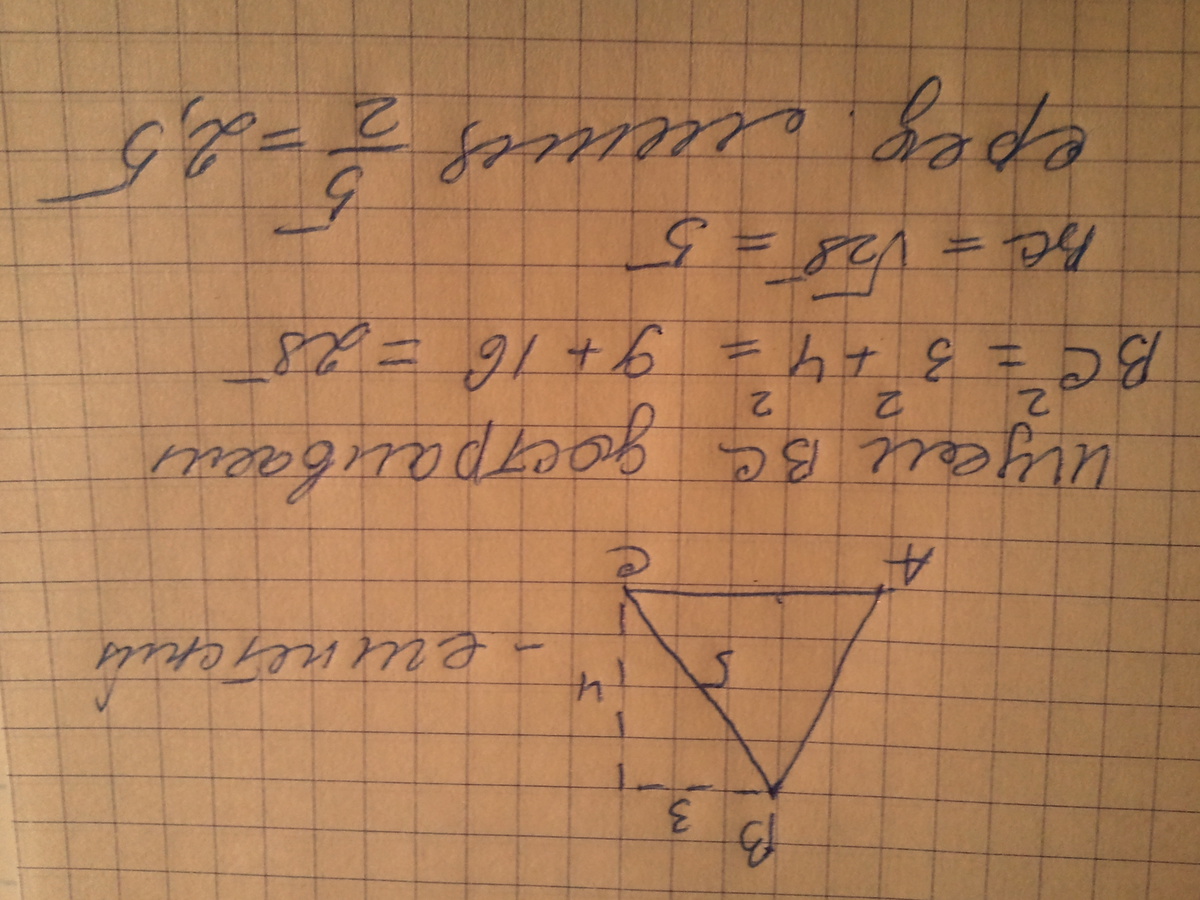 B 3
5 4 - египетский
A C
ищем BC достраиваем
BC² = 3² + 4² = 9 + 16 = 25
BC = √25 = 5
сред. линия 5/2 = 2,5